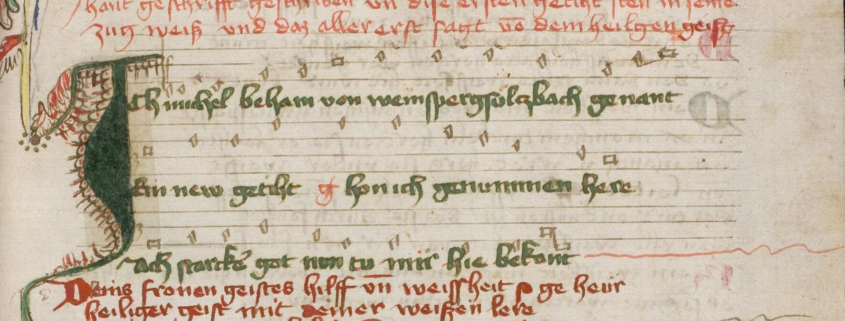 hant geschrifft geschriben vn dise ersten geticht sten in seine
zug weiß vnd das aller erst sagt vō dem heilgen geist
Ich michel beham von weinspergsulczbach genant
Ein new geticht g hon ich genummen here
Ach starcke got nun tu mir hie bekant
Deins fronen geistes hilff vn̄ weissheit ge heür
heiliger geist mit deiner weißen lere